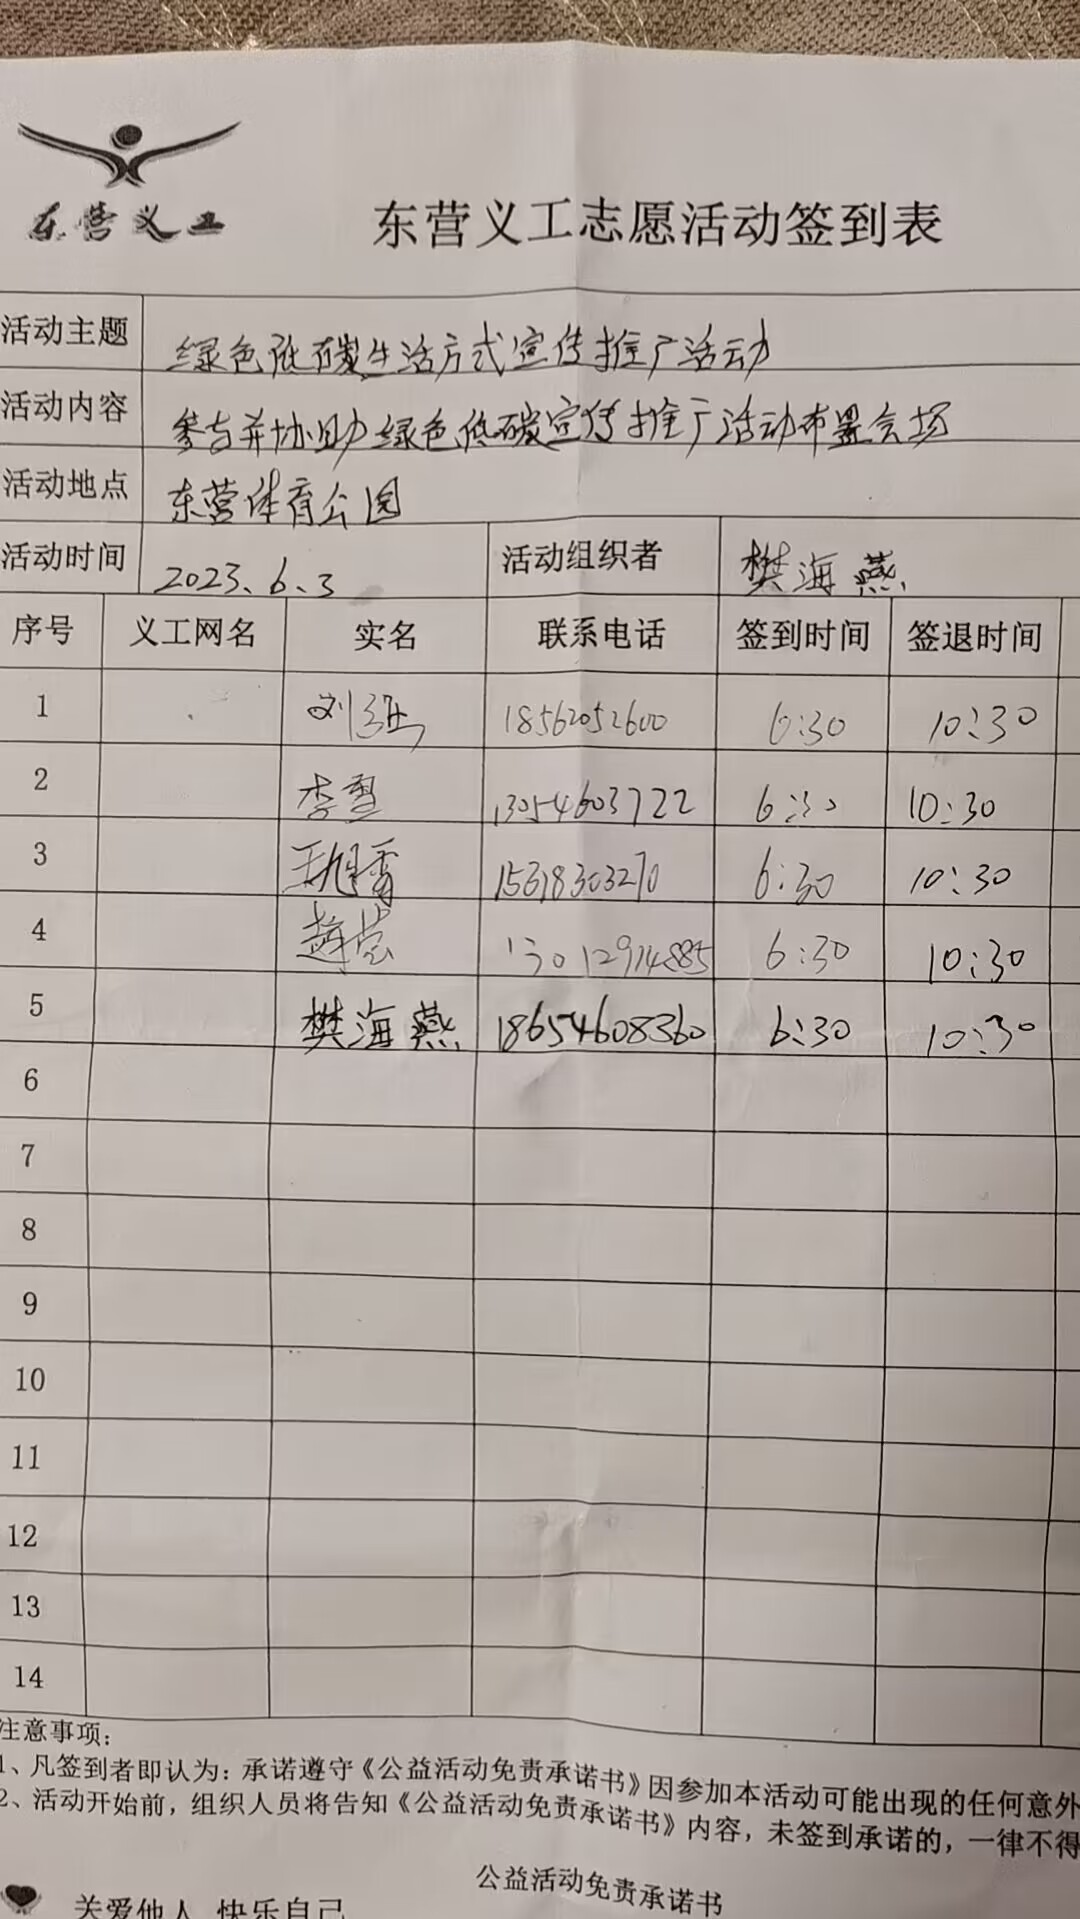 东营义工
东营义工志愿活动签到表
活动主题 绿色低碳生活方式宣传推广活动
活动内容 参与并协助绿色低碳宣传推广活动布置会场
活动地点 东营体育公园
活动时间 2023.6.3 活动组织者 樊海燕
序号 义工网名 实名 联系电话 签到时间 签退时间
1 刘 18562052600 6:30 10:30
2 李雪 13054603722 6:30 10:30
3 6:30 10:30
4 赵 13012914885 6:30 10:30
5 樊海燕 18654608360 6:30 10:30
6
7
8
9
10
11
12
13
14
注意事项：
1、凡签到者即认为：承诺遵守《公益活动免责承诺书》因参加本活动可能出现的任何意外
2、活动开始前，组织人员将告知《公益活动免责承诺书》内容，未签到承诺的，一律不得
公益活动免责承诺书
关爱他人 快乐自己